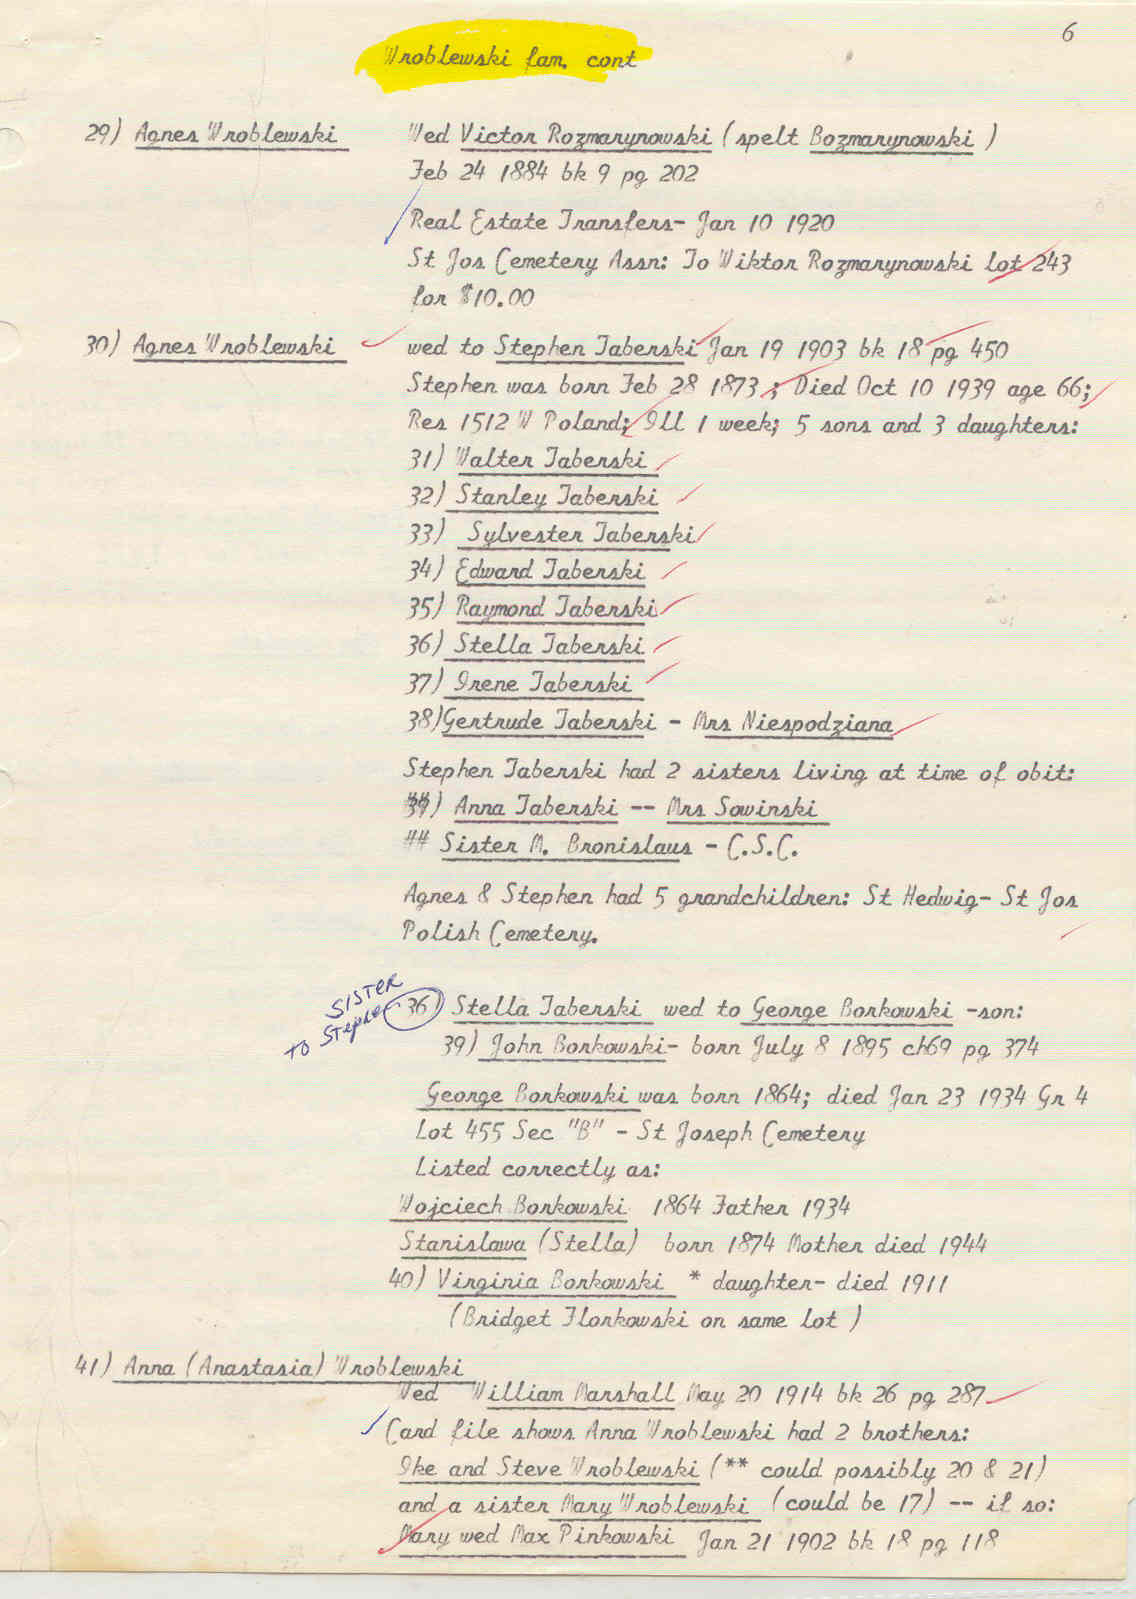 6
Wroblewski fam. cont
29) Agnes Wroblewski Wed Victor Rozmarynowski (spelt Bozmarynowski )
Feb 24 1884 bk 9 pg 202
Real Estate Transfers- Jan 10 1920
St Jos Cemetery Assn: To Wiktor Rozmarynowski lot 243
for $10.00
30) Agnes Wroblewski wed to Stephen Taberski Jan 19 1903 bk 18 pg 450
Stephen was born Feb 28 1873 ; Died Oct 10 1939 age 66;
Res 1512 W Poland; Ill 1 week; 5 sons and 3 daughters:
31) Walter Taberski
32) Stanley Taberski
33) Sylvester Taberski
34) Edward Taberski
35) Raymond Taberski
36) Stella Taberski
37) Irene Taberski
38)Gertrude Taberski - Mrs Niespodziana
Stephen Taberski had 2 sisters living at time of obit:
##) Anna Taberski -- Mrs Sowinski
## Sister M. Bronislaus - C.S.C.
Agnes & Stephen had 5 grandchildren: St Hedwig- St Jos
Polish Cemetery.
SISTER
TO Stephen
36) Stella Taberski wed to George Borkowski -son:
39) John Borkowski- born July 8 1895 ch69 pg 374
George Borkowski was born 1864; died Jan 23 1934 Gr 4
Lot 455 Sec "B" - St Joseph Cemetery
Listed correctly as:
Wojciech Borkowski 1864 Father 1934
Stanislawa (Stella) born 1874 Mother died 1944
40) Virginia Borkowski * daughter- died 1911
(Bridget Florkowski on same lot )
41) Anna (Anastasia) Wroblewski
Wed William Marshall May 20 1914 bk 26 pg 287
Card file shows Anna Wroblewski had 2 brothers:
Ike and Steve Wroblewski (** could possibly 20 & 21)
and a sister Mary Wroblewski (could be 17) -- if so:
Mary wed Max Pinkowski Jan 21 1902 bk 18 pg 118